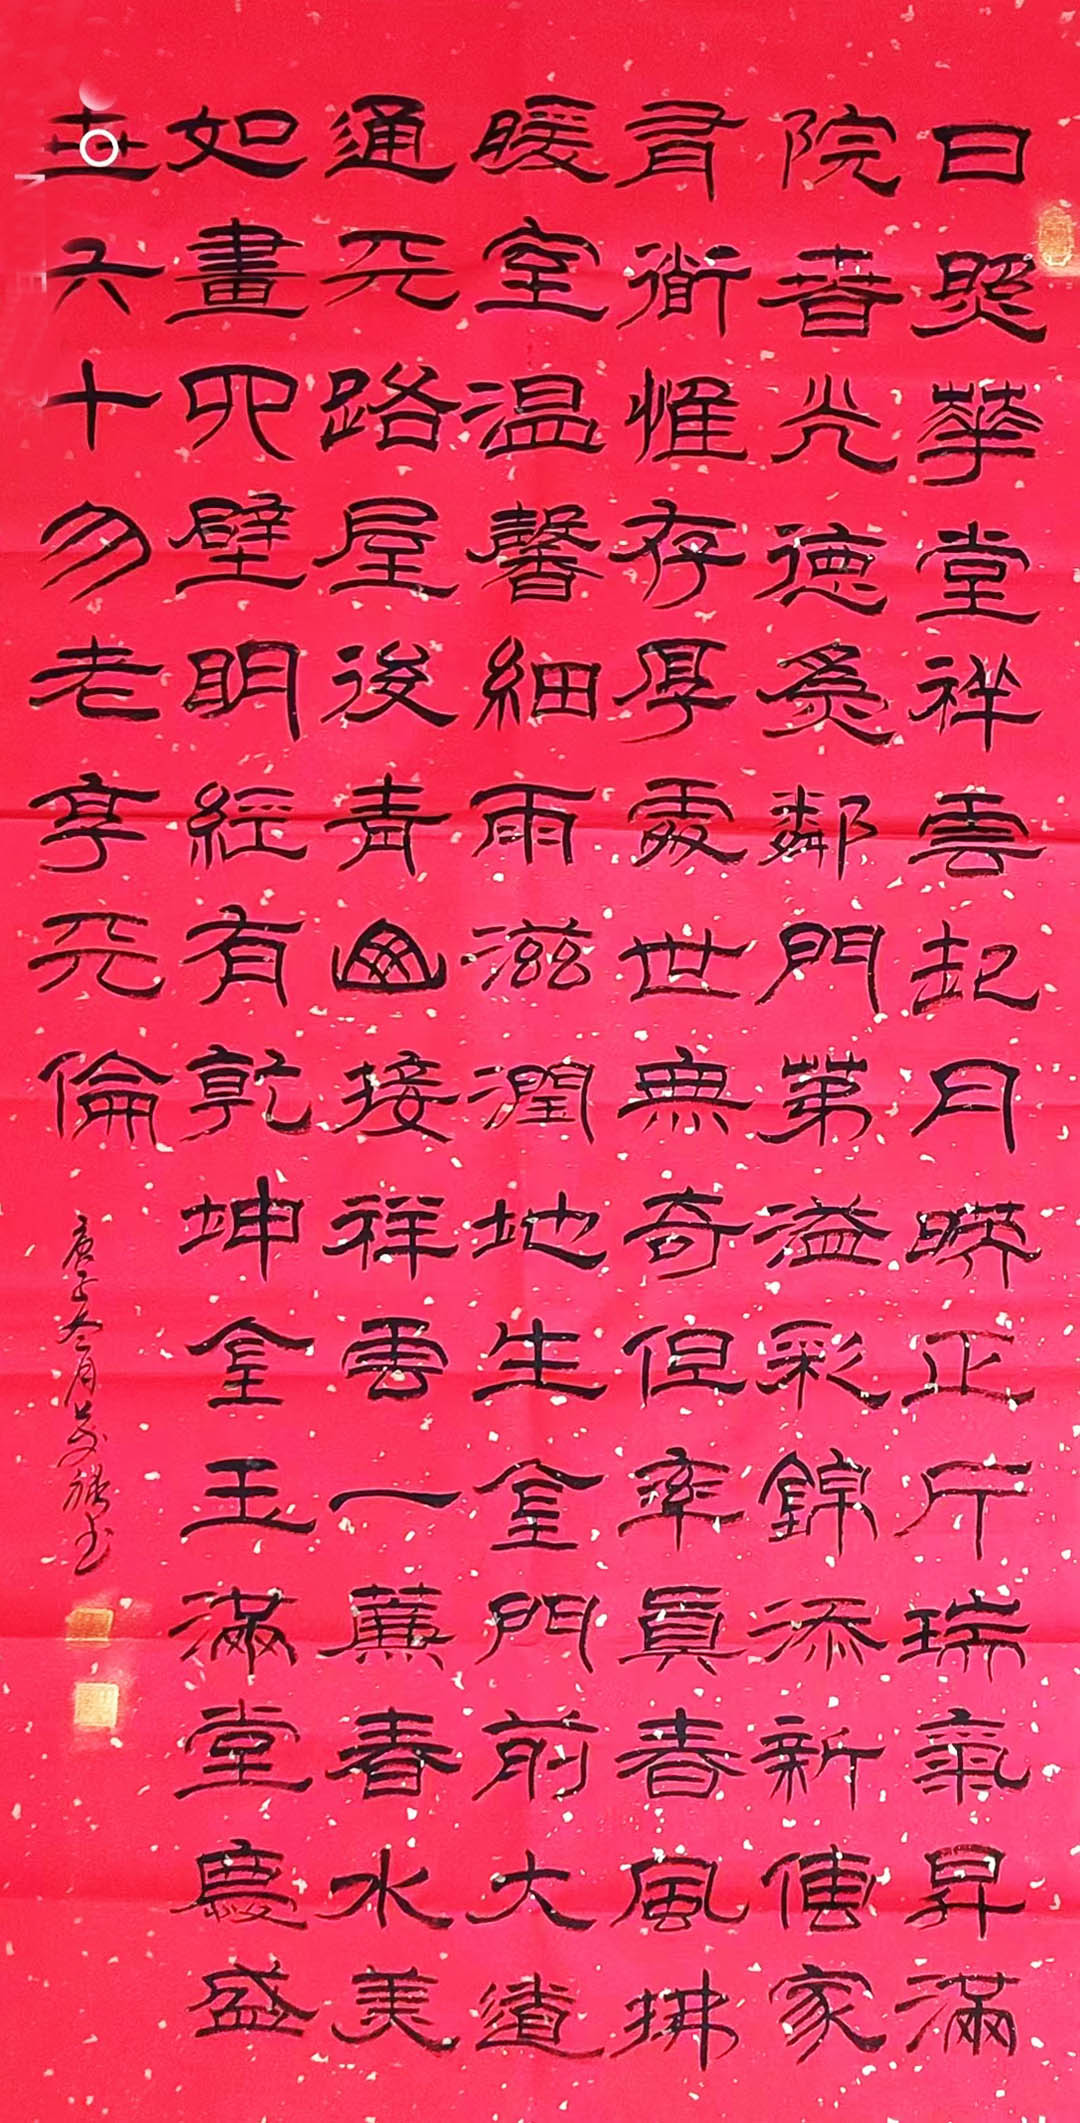 日照華堂祥雲起月暎正厅瑞氣昇滿
院春光德爲鄰門第溢彩錦添新傳家
有衜惟存厚處世無奇但率真春風拂
暖室温馨細雨滋潤地生金門前大道
通天路屋後青山接祥雲一簾春水美
如畫四壁明經有乾坤金玉滿堂慶盛
世六十勿老享天倫
庚子冬月书